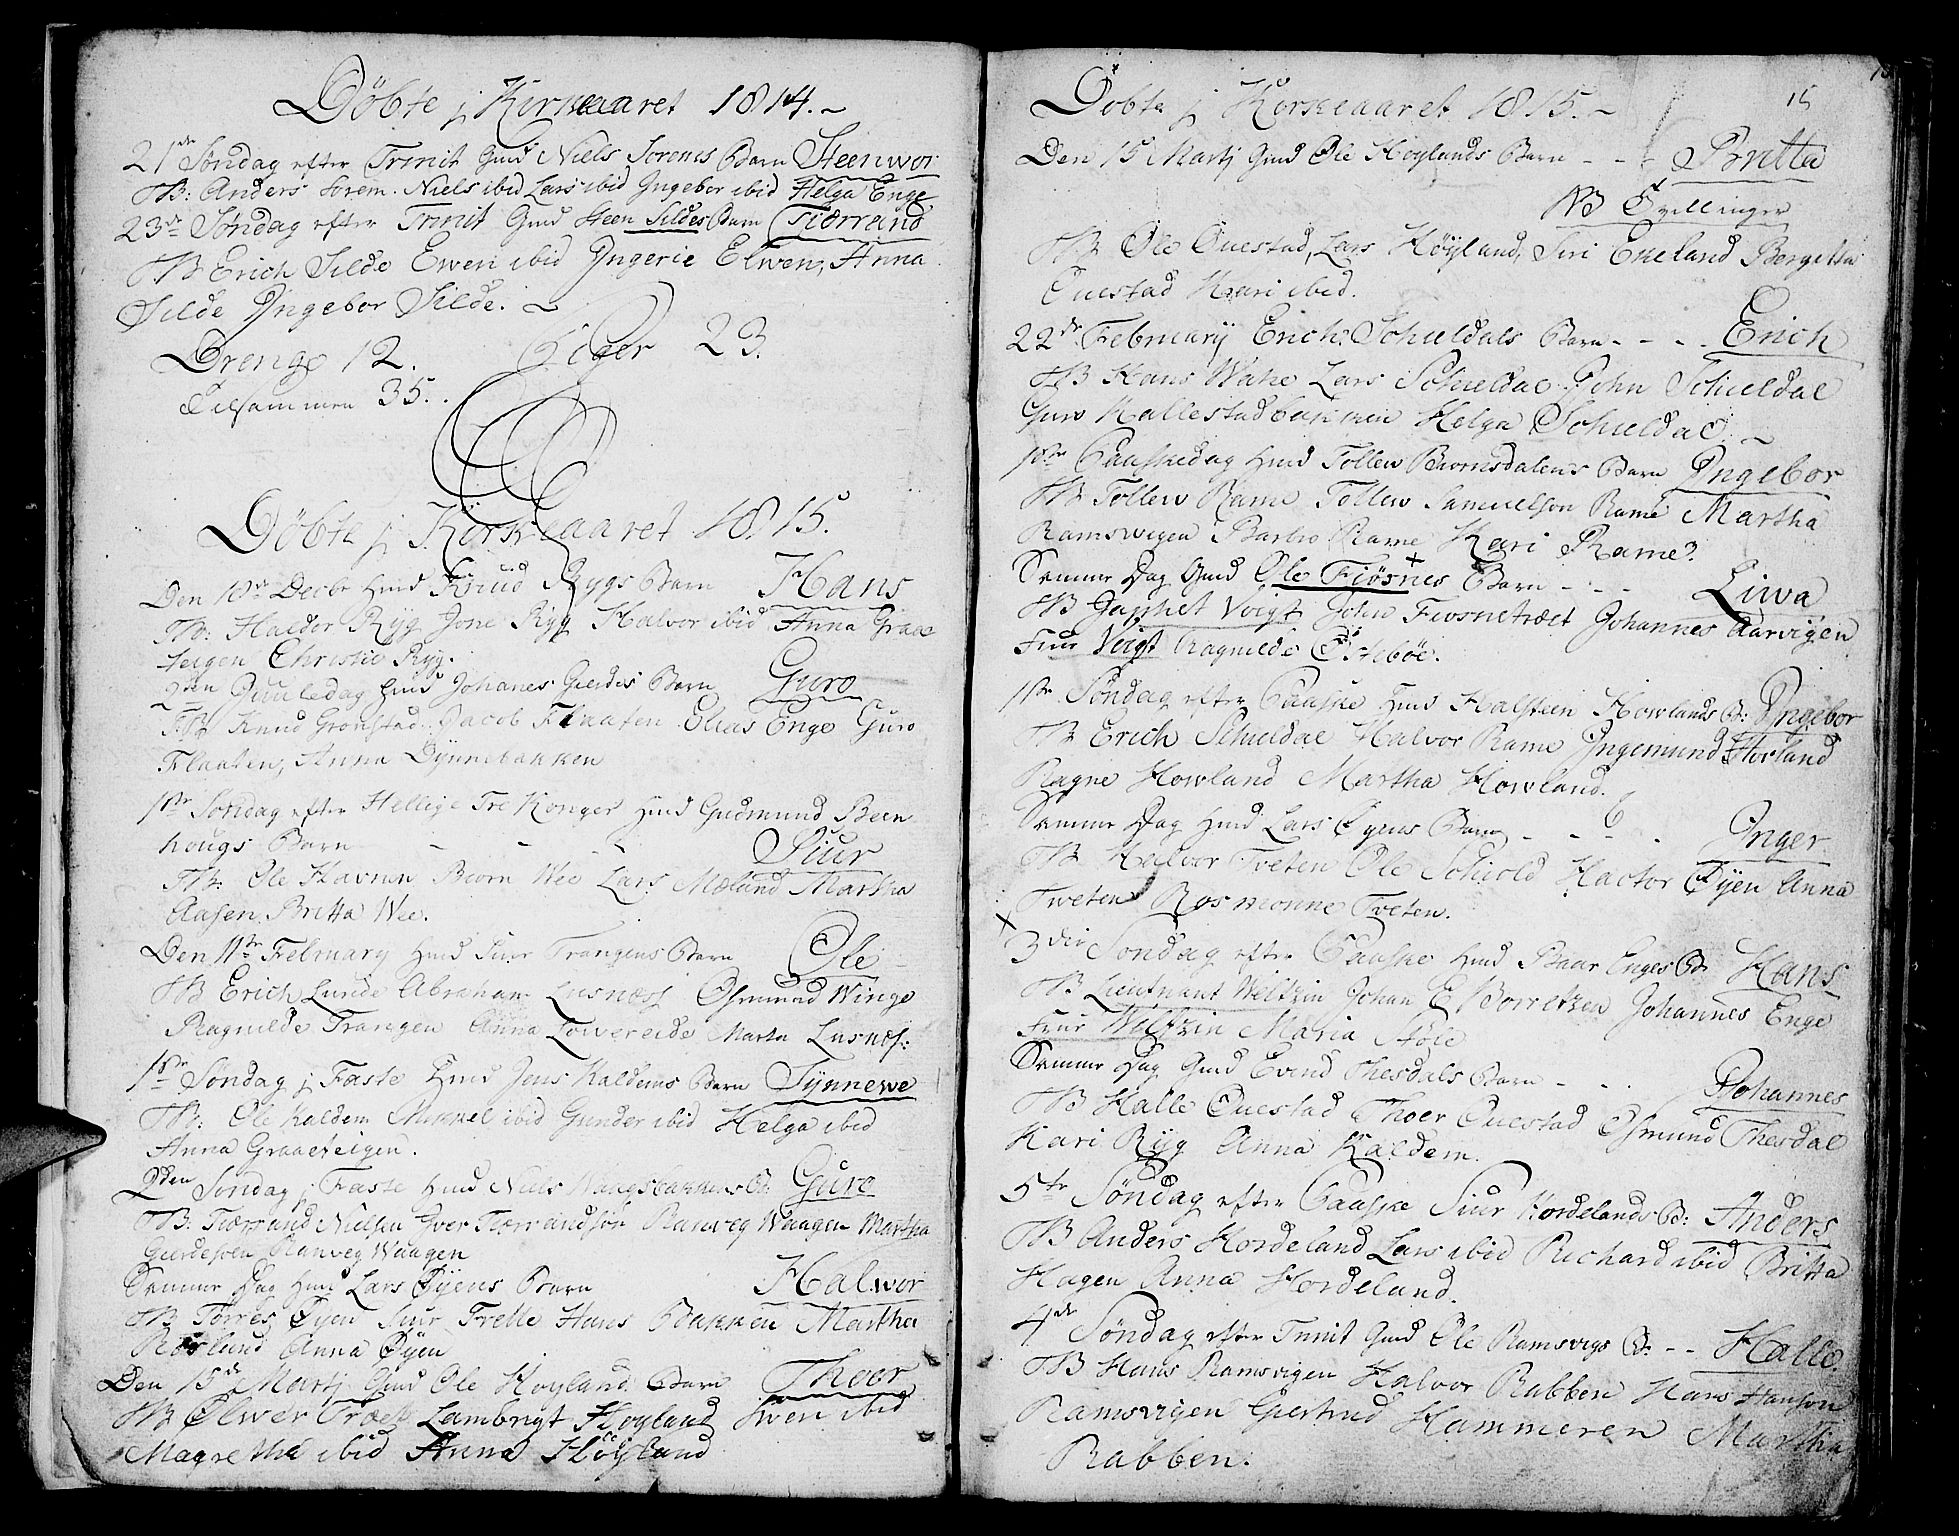 Döbte j Kirkeaaret 1814.
21de Søndag efter Trinit Gmd Niels Sorems Barn Steenwor
TB: Anders Sorem. Niels ibid Lars ibid Yngebor ibid Helga Enge
23de Søndag efter Trinit Gmd Steen Sildes Barn Tiærrand
TB Erich Silde Ewen ibid Yngerie Elwen, Anna
Silde Yngebor Silde.
Drenge 12. Piger 23.
Tilsammen 35.
Döbte j Kirkeaaret 1815.
Den 18de Decbr hmd Knud Rygs Barn Hans
TB: Haldor Ryg Jone Ryg Halvor ibid Anna Graae
teigen Christie Ryg.
2den Juuledag hmd Johanes Gierdes Barn Guro
TB Knud Gronstad Jacob Flaaten Elias Enge Guro
Flaaten, Anna Dynnebakken
1ste Søndag efter Hellige Tre Konger hmd Gudmund Been
hougs Barn - - - Siur
TB: Ole Havnen Biorn Wee Lars Mæland Martha
Aasen Britta Wee.
Den 11te February hmd Siur Trangens Barn Ole
TB Erich Lunde Abraham Lusness Osmund Winge
Ragnilde Trangen Anna Lowereide Marta Lusness:
1ste Søndag j Faste Hmd Jens Kaldems Barn Synnewe
TB: Ole Kaldem Mikkel ibid Gunder ibid Helga ibid
Anna Graaeteigen.
2den Søndag j Faste Hmd Niels Waagsbakkens B. Guro
TB: Tiærrand Nielsen Iver Tiærrandsön Ranveg Waagen Martha
Gierdesven Ranveg Waagen
Samme Dag Hmd Lars Øyens Barn Halwor
TB Torres Øyen Siur Frette Hans Bakken Martha
Røslund Anna Øyen
Den 15de Martj Gmd Ole Høyland Barn Thoer
TB Elwer Træet Lambrigt Høyland Swen ibid
Magretha ibid Anna Höyland
15
Döbte j Kirkeaaret 1815.
Den 15 Martj Gmd Ole Høylands Barn - - - Britta
NB Tvillinger
TB Ole Questad, Lars Høyland, Siri Ekeland Bergitta
Questad Kari ibid.
22de February Erich Schieldals Barn - - - Erich
TB Hans Wake Lars Schieldal John Schieldal
Guro Hallestadbakken Helga Schieldal.
1ste Paaskedag hmd Tollew Biornsdalens Barn Yngebor
TB Tollew Rame Tollew Samuelson Rame Martha
Ramswigen Barbro Rame Kari Rame.
Samme Dag Gmd Ole Fiösnes Barn - - - Liwa
TB Japhet Voigt John Fiosnetræet Johannes Aarvigen
Frue Voigt Ragnilde Østebøe.
1ste Søndag efter Paaske Hmd Halsteen Howlands B: Yngebor
TB Erich Schieldal Halvor Rame Yngemund Howland
Ragne Howland Martha Howland.
Samme Dag Hmd Lars Øyens Barn - - - Ynger
TB Halvor Tveten Ole Schiold Hactor Øyen Anna
Tveten Rosmonne Tveten.
3die Søndag efter Paaske hmd Baar Enges B: Hans
TB Lieutnant Weltzin Johan E Borretzen Johannes Enge
Frue Weltzin Maria Støle
Samme Dag Gmd Evind Thesdals Barn - - - Johannes
TB Halle Questad Thoer Questad Osmund Thesdal
Kari Ryg Anna Kaldem.
5te Søndag efter Paaske Siur Hordelands B: Anders
TB Anders Hordeland Lars ibid Richard ibid Britta
Hagen Anna Hordeland.
4de Søndag efter Trinit Gmd Ole Ramsvigs B. - - Halle
TB Hans Ramsvigen Halvor Rabben Hans Hanson
Ramsvigen Giertrud Hammeren Martha
Rabben.